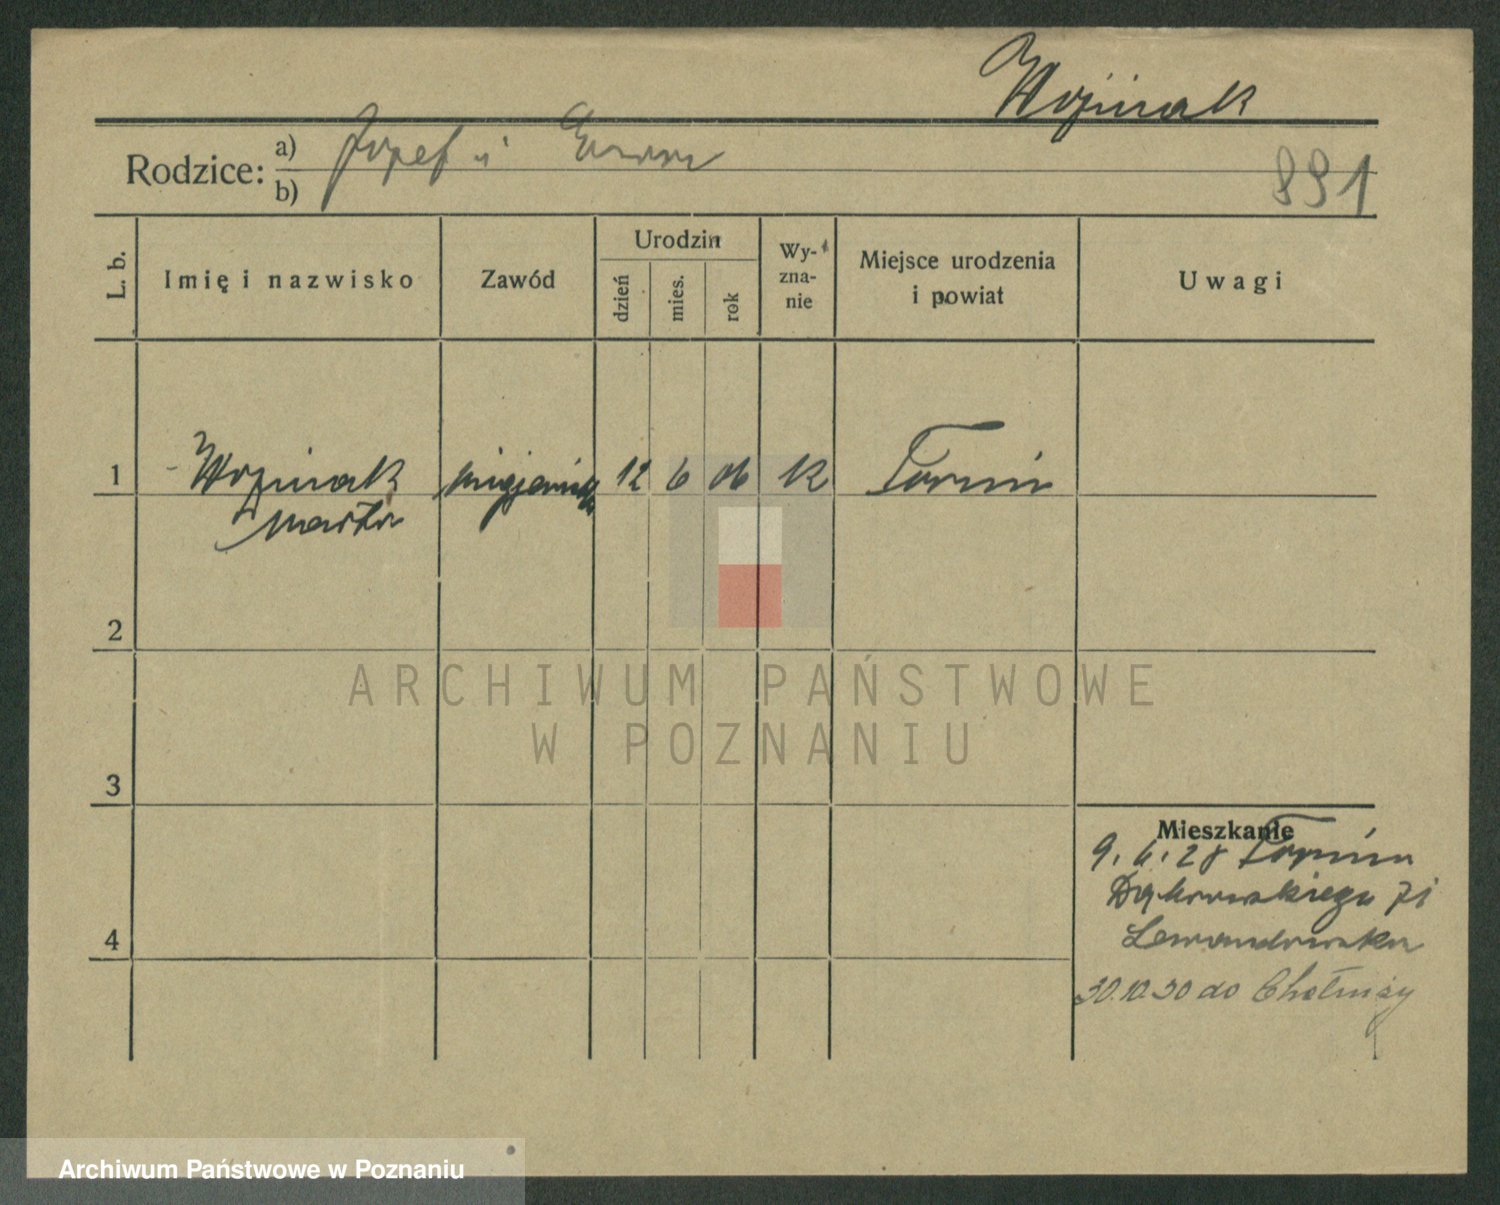 Woziwak
Rodzice: a) Józef i
b)
891
L. b.
Imię i nazwisko
Zawód
Urodzin
dzień
mies.
rok
Wy-
zna-
nie
Miejsce urodzenia
i powiat
Uwagi
1
12 6 06 k Toruń
Marta
2
ARCHIWUM PAŃSTWOWE
W POZNANIU
3
Mieszkanie
9.6.28 Toruń
Dąbrowskiego 71
Lewandowska
4
30.10.30 do Chełmży
Archiwum Państwowe w Poznaniu